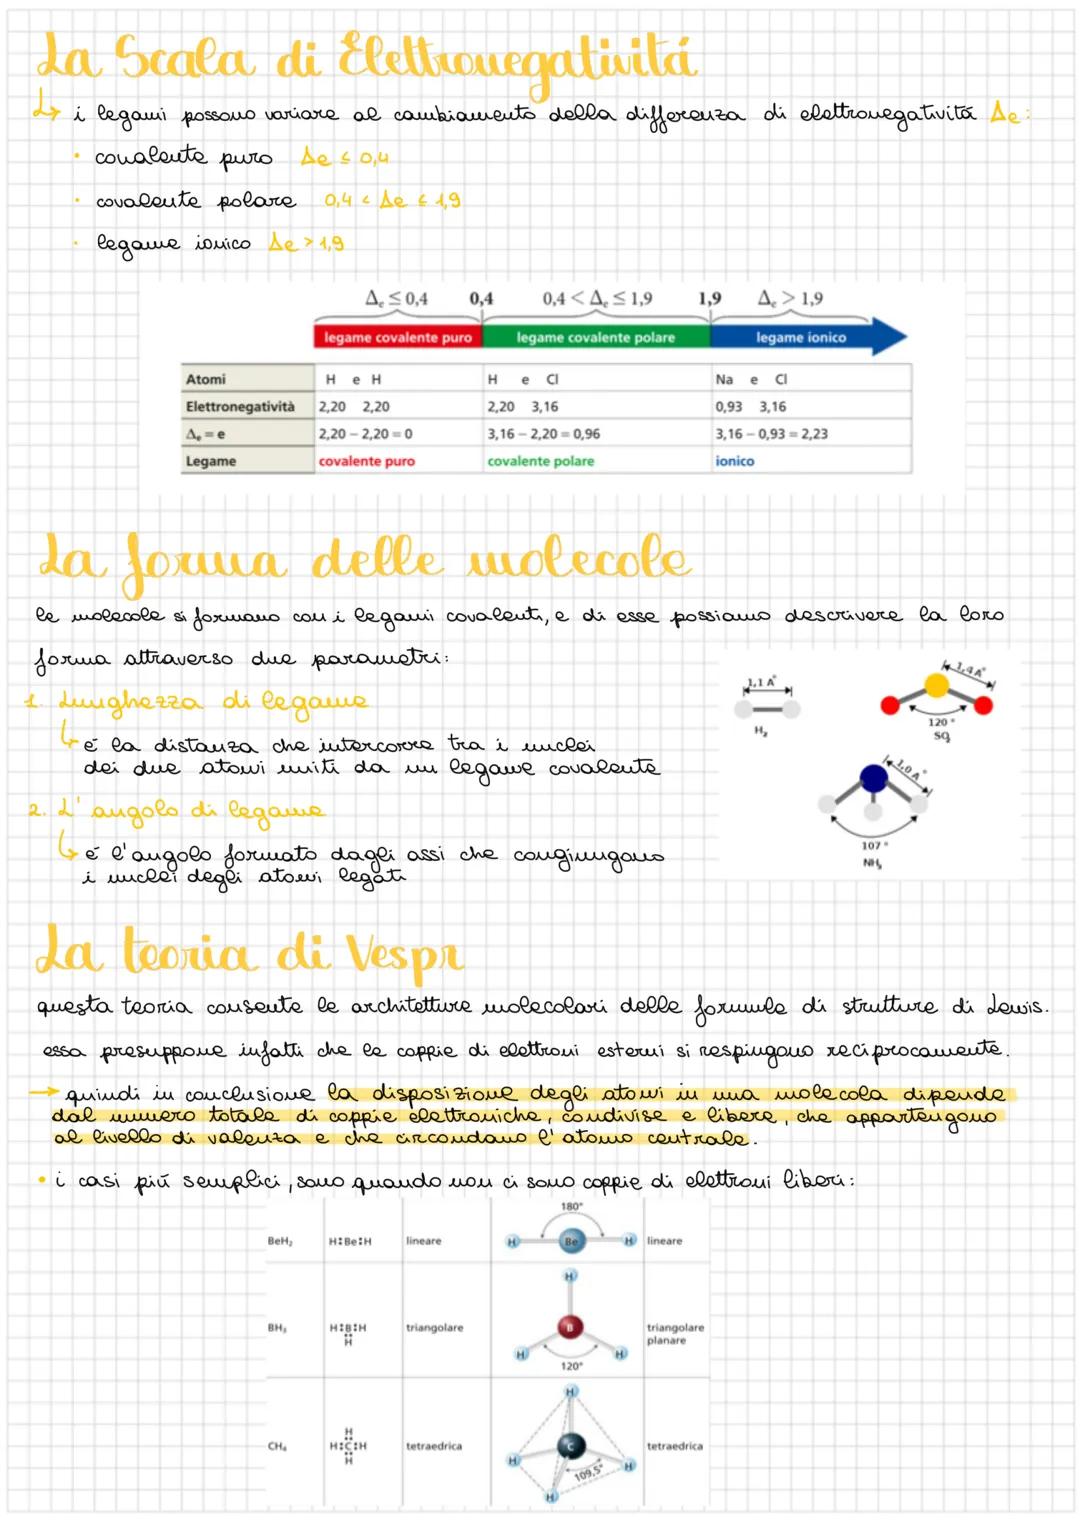 La Scala di Elettronegativitá
↳ i legami possono variare al cambiamento della differenza di elettronegativitá Δe:
• covalente puro Δe ≤ 0,4
• covalente polare 0,4 < Δe ≤ 1,9
• legame ionico Δe > 1,9
Δe ≤ 0,4 0,4 0,4 < Δe ≤ 1,9 1,9 Δe > 1,9
legame covalente puro legame covalente polare legame ionico
Atomi H e H H e Cl Na e Cl
Elettronegatività 2,20 2,20 2,20 3,16 0,93 3,16
Δe = e 2,20 – 2,20 = 0 3,16 – 2,20 = 0,96 3,16 – 0,93 = 2,23
Legame covalente puro covalente polare ionico
La forma delle molecole
le molecole si formano con i legami covalenti, e di esse possiamo descrivere la loro
forma attraverso due parametri:
1. Lunghezza di legame
↳ é la distanza che intercorre tra i nuclei
dei due atomi uniti da un legame covalente
2. L'angolo di legame
↳ é l'angolo formato dagli assi che congiungono
i nuclei degli atomi legati
1,1 A°
H2
1,4 A°
120 °
SO2
1,0 A°
107 °
NH3
La teoria di Vespr
questa teoria consente le architetture molecolari delle formule di strutture di Lewis.
essa presuppone infatti che le coppie di elettroni esterni si respingano reciprocamente.
→ quindi in conclusione la disposizione degli atomi in una molecola dipende
dal numero totale di coppie elettroniche, condivise e libere, che appartengono
al livello di valenza e che circondano l'atomo centrale.
• i casi piú semplici, sono quando non ci sono coppie di elettroni liberi:
180°
BeH2 H:Be:H lineare H Be H lineare
H
BH3 H:B:H triangolare B triangolare
H planare
H H
120°
H
H
CH4 H:C:H tetraedrica C tetraedrica
H
H H
109,5°
H